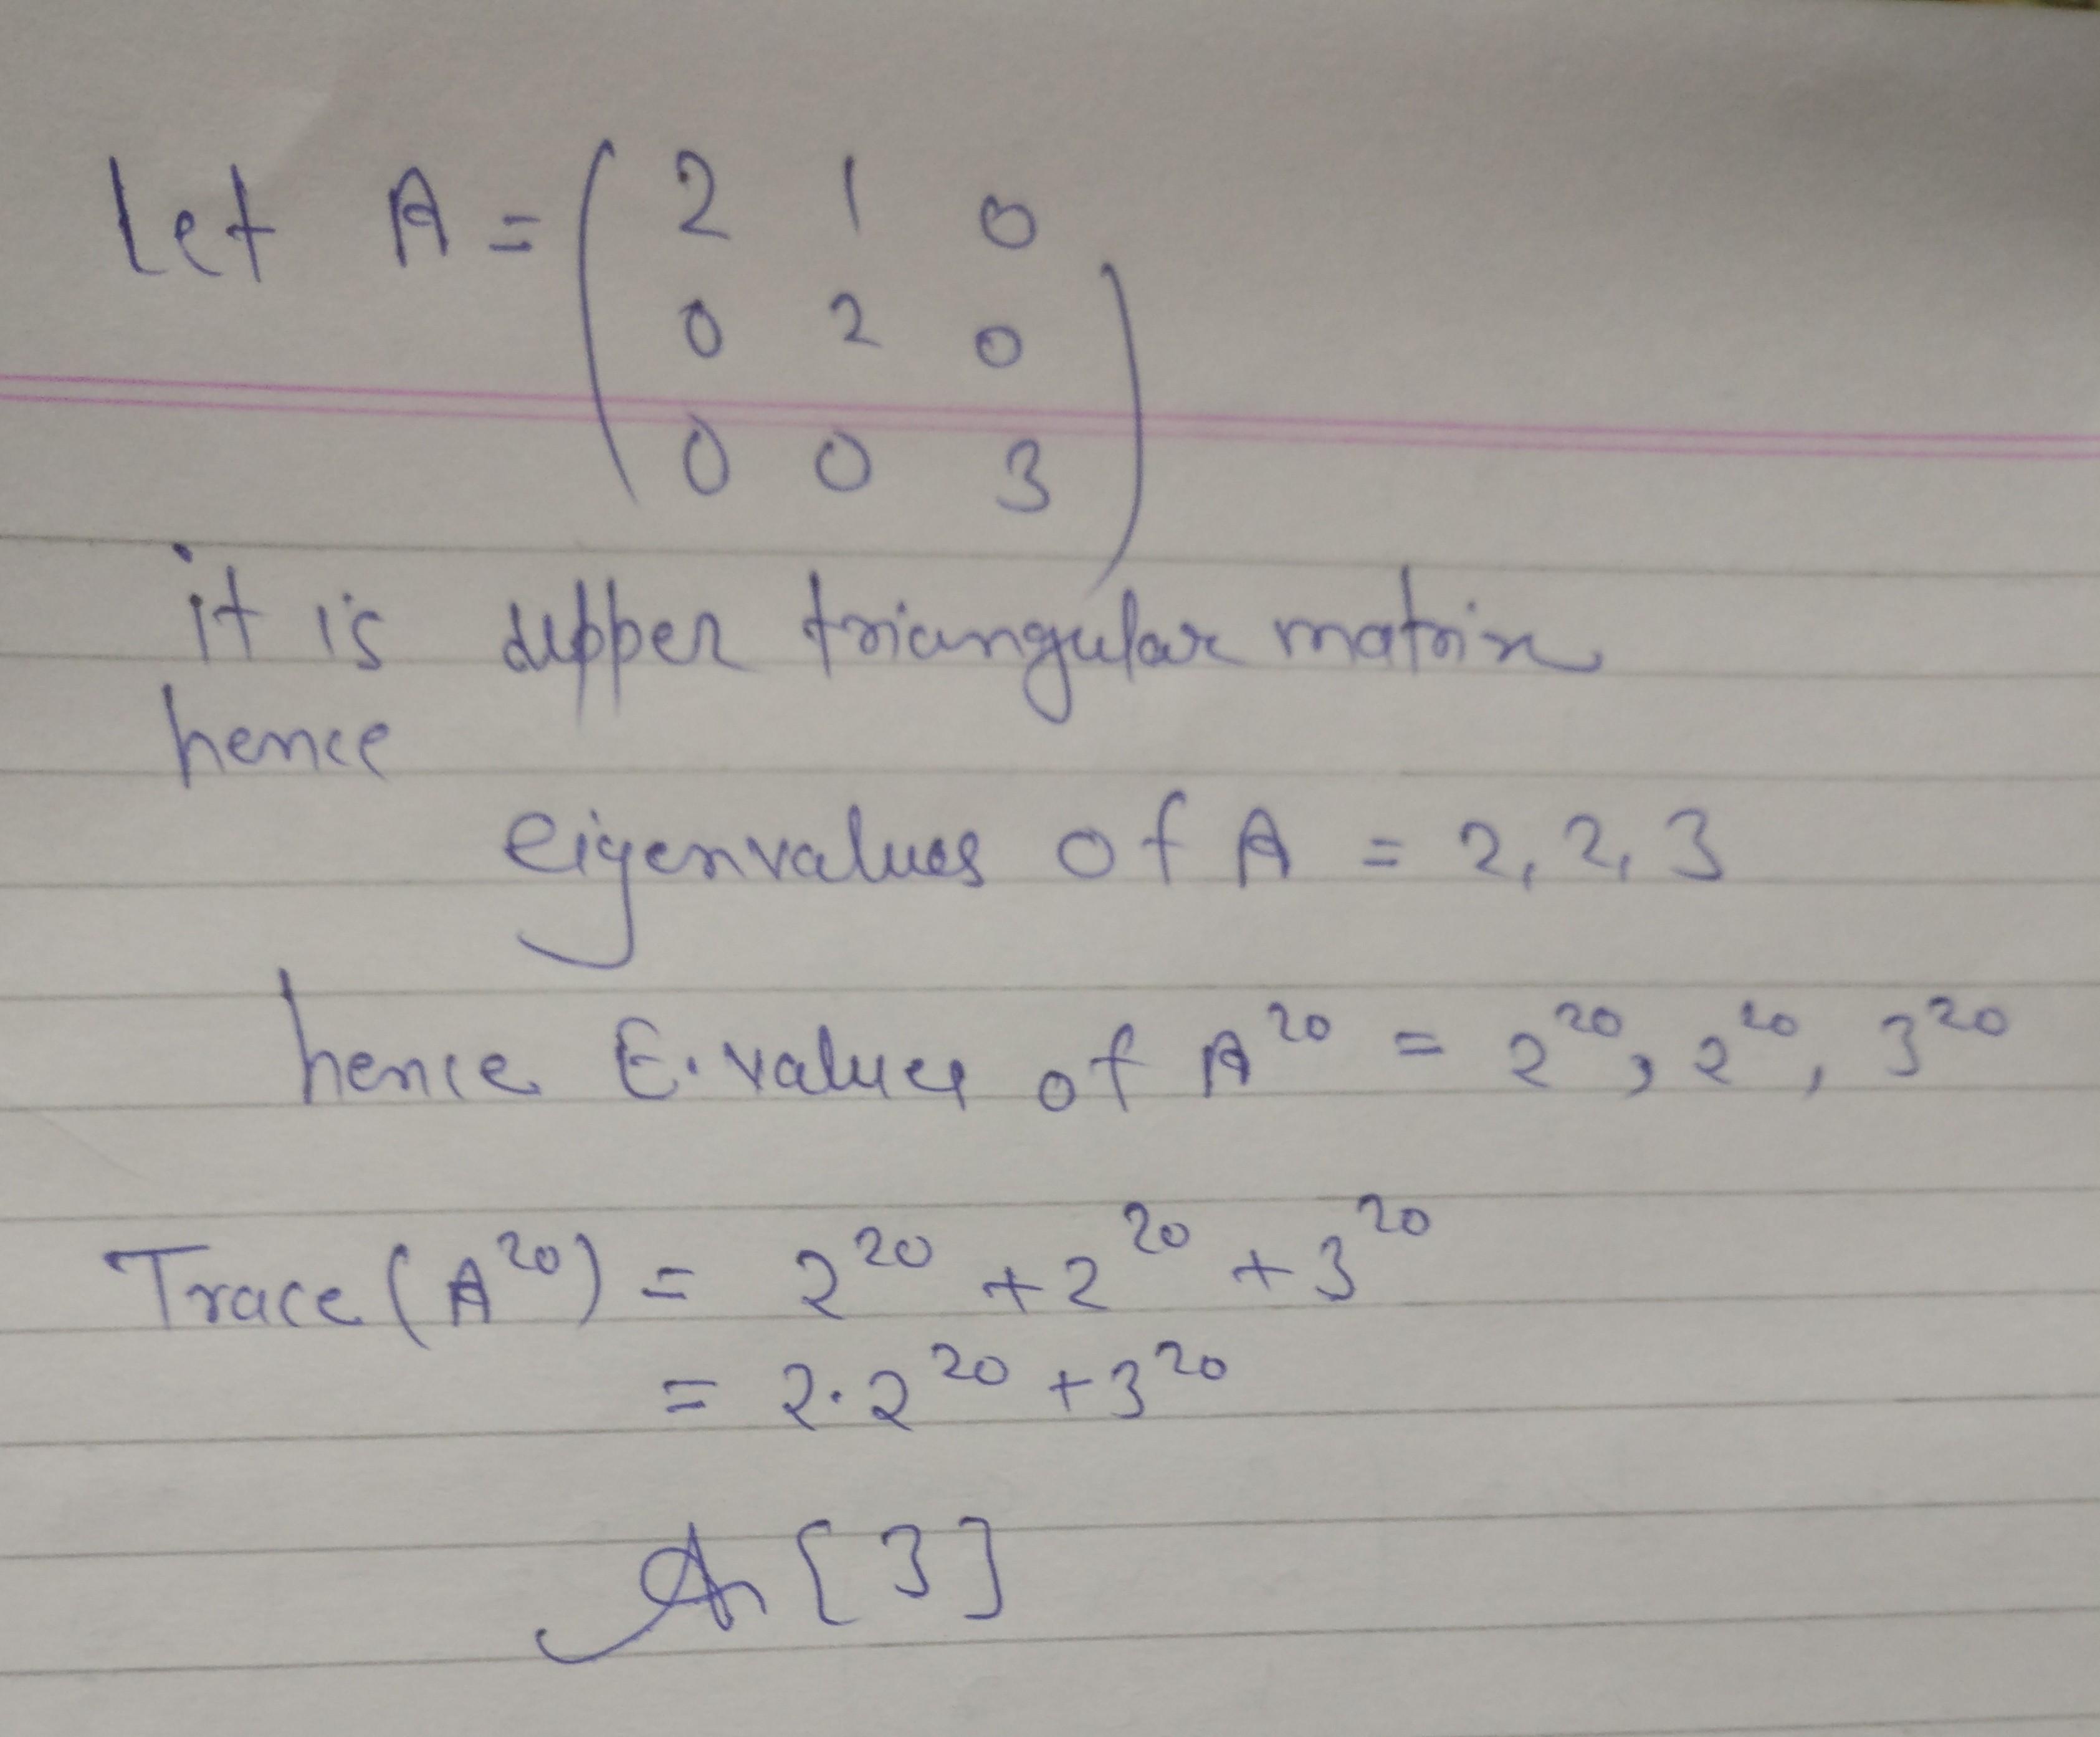 Let A = ( 2 1 0
0 2 0
0 0 3 )
it is upper triangular matrix
hence
eigenvalues of A = 2, 2, 3
hence E. values of A²⁰ = 2²⁰, 2²⁰, 3²⁰
Trace (A²⁰) = 2²⁰ + 2²⁰ + 3²⁰
= 2·2²⁰ + 3²⁰
[3]